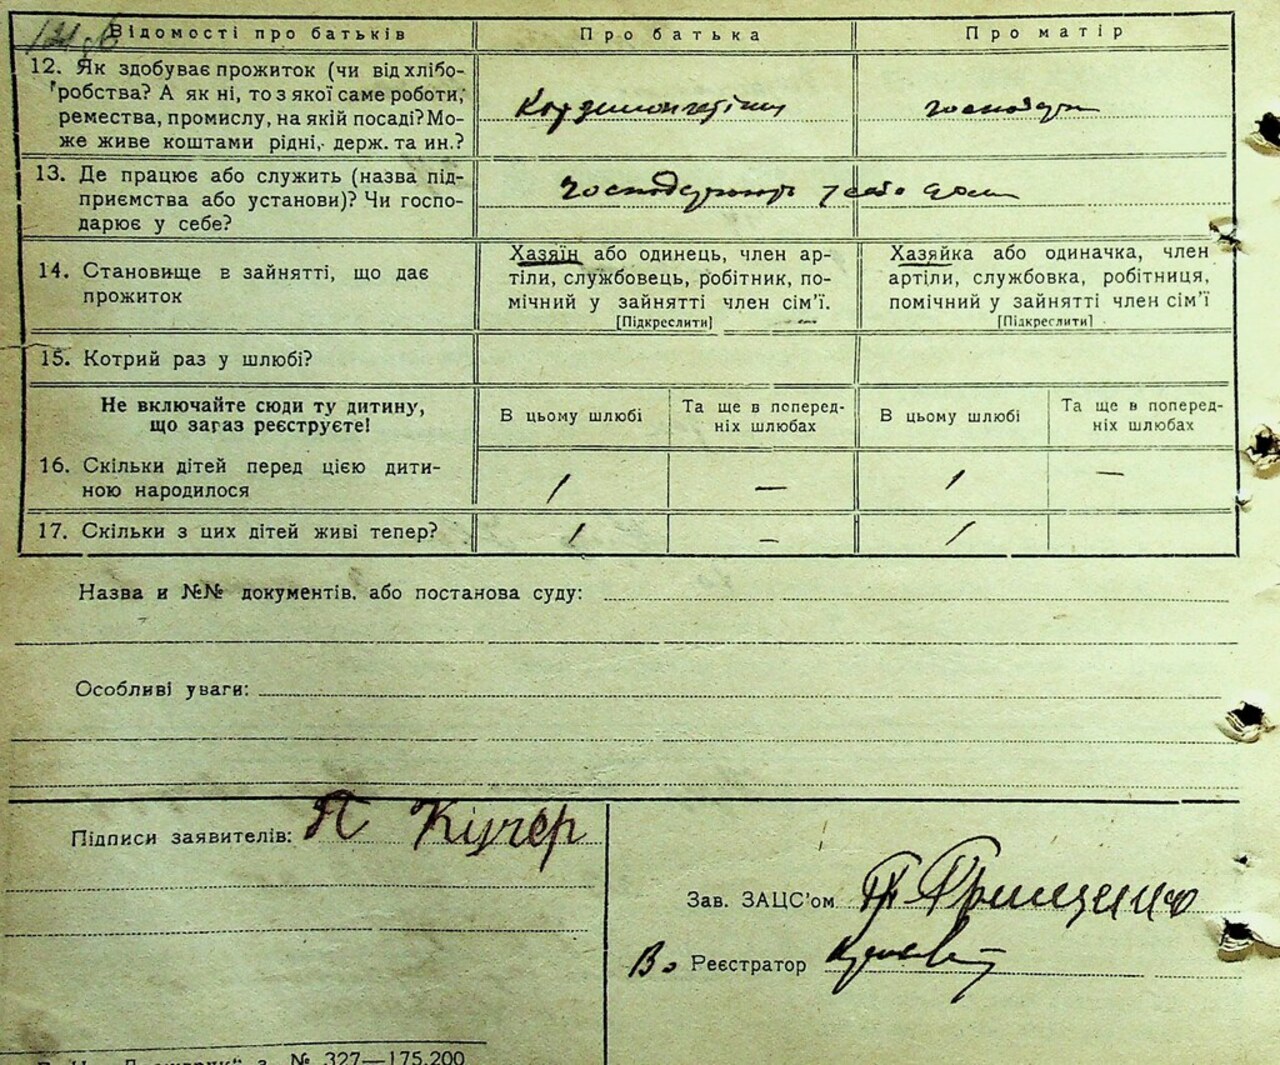 Відомості про батьків
Про батька
Про матір
12. Як здобуває прожиток (чи від хлібо-
робства? А як ні, то з якої саме роботи,
ремества, промислу, на якій посаді? Мо-
же живе коштами рідні, держ. та ин.?
13. Де працює або служить (назва під-
приємства або установи)? Чи госпо-
дарює у себе?
14. Становище в зайнятті, що дає
прожиток
Хазяїн або одинець, член ар-
тіли, службовець, робітник, по-
мічний у зайнятті член сім'ї.
[Підкреслити]
Хазяйка або одиначка, член
артіли, службовка, робітниця,
помічний у зайнятті член сім'ї
[Підкреслити]
15. Котрий раз у шлюбі?
Не включайте сюди ту дитину,
що загаз реєструєте!
В цьому шлюбі
Та ще в поперед-
ніх шлюбах
В цьому шлюбі
Та ще в поперед-
ніх шлюбах
16. Скільки дітей перед цією дити-
ною народилося
1 — 1 —
17. Скільки з цих дітей живі тепер?
1 — 1
Назва и №№ документів, або постанова суду:
Особливі уваги:
Підписи заявителів: П Кучер
Зав. ЗАЦС'ом Грищенко
Во Реєстратор
№ 327—175.200